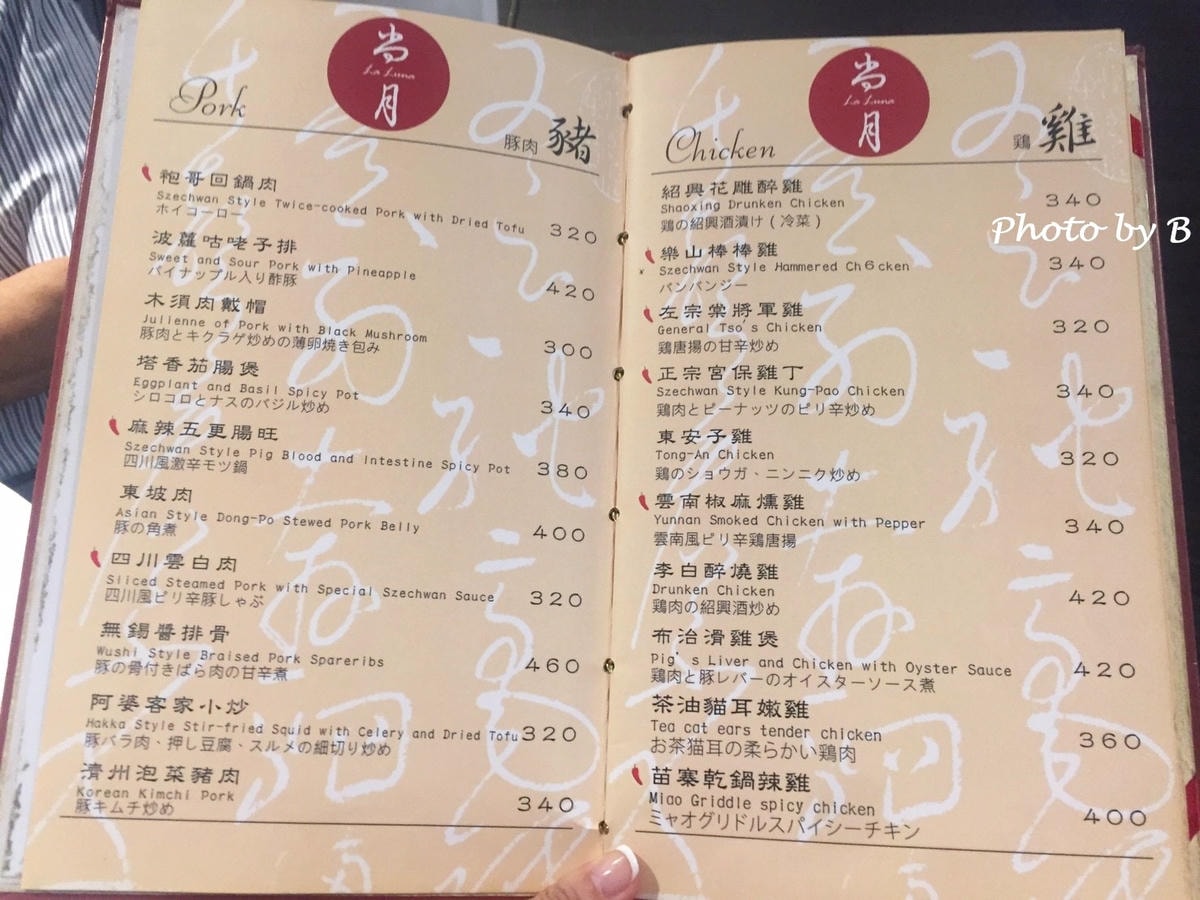 尚
La Luna
月
Pork
豚肉 豬
袍哥回鍋肉
Szechwan Style Twice-cooked Pork with Dried Tofu 320
ホイコーロー
波蘿咕咾子排
Sweet and Sour Pork with Pineapple
パイナップル入り酢豚 420
木須肉戴帽
Julienne of Pork with Black Mushroom
豚肉とキクラゲ炒めの薄卵焼き包み 300
塔香茄腸煲
Eggplant and Basil Spicy Pot
シロコロとナスのバジル炒め 340
麻辣五更腸旺
Szechwan Style Pig Blood and Intestine Spicy Pot 380
四川風激辛モツ鍋
東坡肉
Asian Style Dong-Po Stewed Pork Belly 400
豚の角煮
四川雲白肉
Sliced Steamed Pork with Special Szechwan Sauce 320
四川風ピリ辛豚しゃぶ
無錫醬排骨
Wushi Style Braised Pork Spareribs 460
豚の骨付きばら肉の甘辛煮
阿婆客家小炒
Hakka Style Stir-fried Squid with Celery and Dried Tofu 320
豚バラ肉、押し豆腐、スルメの細切り炒め
濟州泡菜豬肉
Korean Kimchi Pork
豚キムチ炒め 340
尚
La Luna
月
Chicken
鶏 雞
紹興花雕醉雞
Shaoxing Drunken Chicken 340
鶏の紹興酒漬け(冷菜)
樂山棒棒雞
Szechwan Style Hammered Ch6cken 340
バンバンジー
左宗棠將軍雞
General Tso's Chicken 320
鶏唐揚の甘辛炒め
正宗宮保雞丁
Szechwan Style Kung-Pao Chicken 340
鶏肉とピーナッツのピリ辛炒め
東安子雞
Tong-An Chicken 320
鶏のショウガ、ニンニク炒め
雲南椒麻燻雞
Yunnan Smoked Chicken with Pepper 340
雲南風ピリ辛鶏唐揚
李白醉燒雞
Drunken Chicken 420
鶏肉の紹興酒炒め
布治滑雞煲
Pig's Liver and Chicken with Oyster Sauce 420
鶏肉と豚レバーのオイスターソース煮
茶油貓耳嫩雞
Tea cat ears tender chicken 360
お茶猫耳の柔らかい鶏肉
苗寨乾鍋辣雞
Miao Griddle spicy chicken 400
ミャオグリドルスパイシーチキン
Photo by B